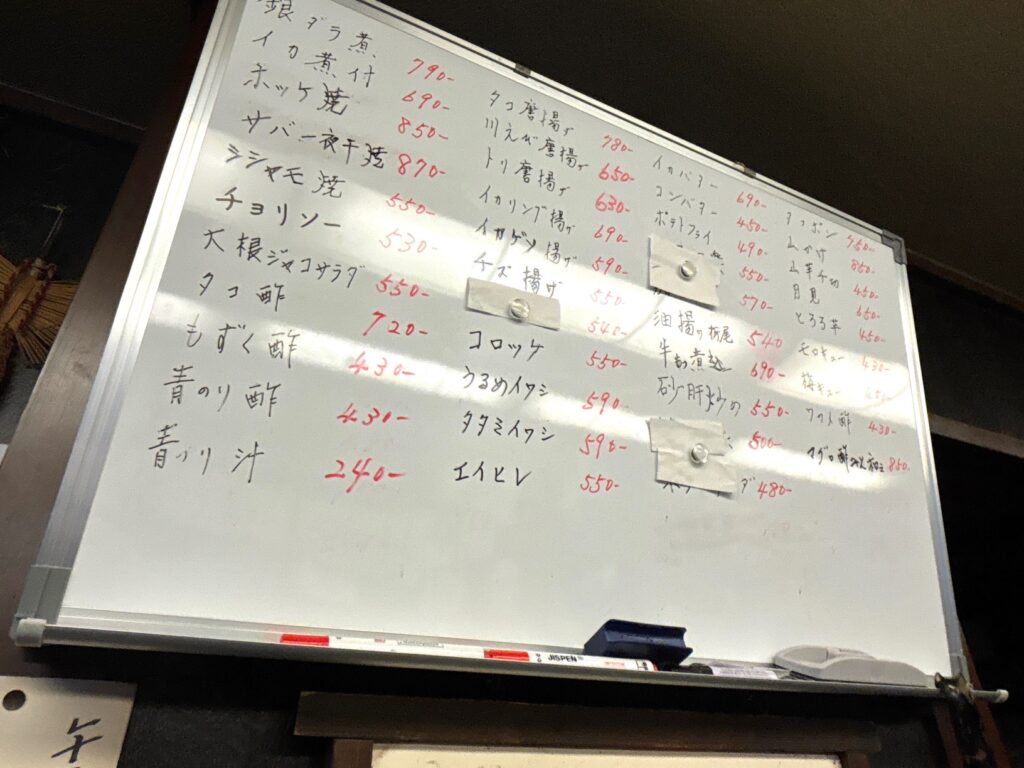 銀ダラ煮 790-
イカ煮付 690-
ホッケ焼 850-
サバ一夜干焼 870-
シシャモ焼 550-
チョリソー 530-
大根ジャコサラダ 550-
タコ酢 720-
もずく酢 430-
青のり酢 430-
青のり汁 240-
タコ唐揚げ 780-
川えび唐揚げ 650-
トリ唐揚げ 630-
イカリング揚げ 690-
イカゲソ揚げ 590-
チーズ揚げ 550-
540-
コロッケ 550-
うるめイワシ 590-
タタミイワシ 590-
エイヒレ 550-
イカバター 690-
コンバター 450-
ポテトフライ 490-
550-
570-
油揚げ栃尾 540
牛もつ煮込 690-
砂肝炒め 550-
500-
ダ 480-
450-
山かけ 850-
山芋千切 450-
月見 650-
とろろ芋 450-
モロキュー 430-
梅キュー
ワカメ酢 430-
マグロ 850-
JISPEN